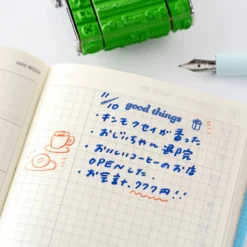 11/10 good things
・キンモクセイが香った
・おじいちゃん退院
・おいしいコーヒーのお店
OPENした
・お会計777円!!